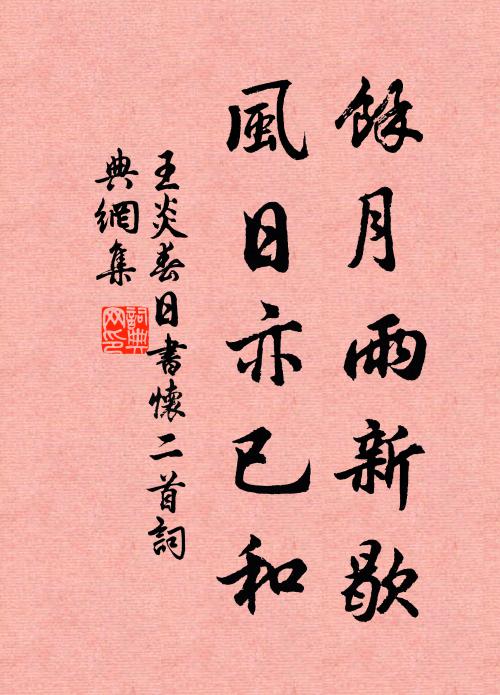 餘月雨新歇
風日亦已和
王炎春日書懷二首詞
典網集
詞典
网印